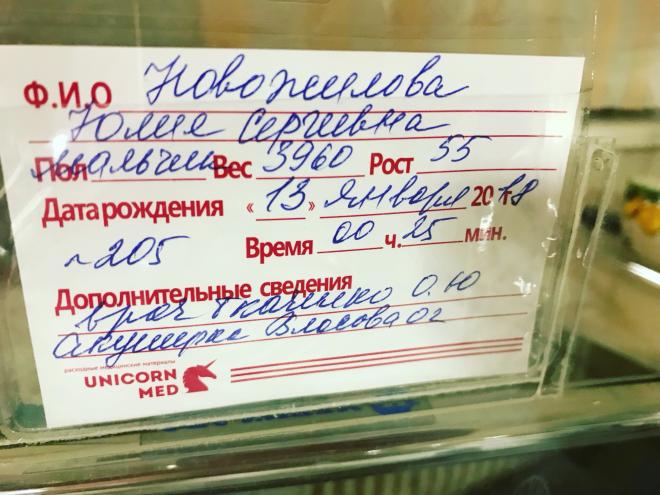 Ф.И.О Новожилова
Юлия Сергеевна
Пол мальчик Вес 3960 Рост 55
Дата рождения «13» января 2018
~205 Время 00 ч. 25 мин.
Дополнительные сведения
врач Ткаченко О.Ю
Акушерка Власова ОГ
расходные медицинские материалы
UNICORN
MED